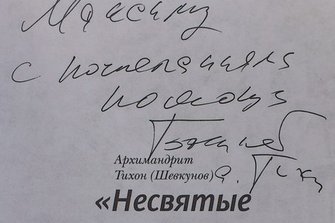 Максиму
с пожеланиями
помощи
Божией
Архимандрит
Тихон (Шевкунов)
а. Тихон
«Несвятые